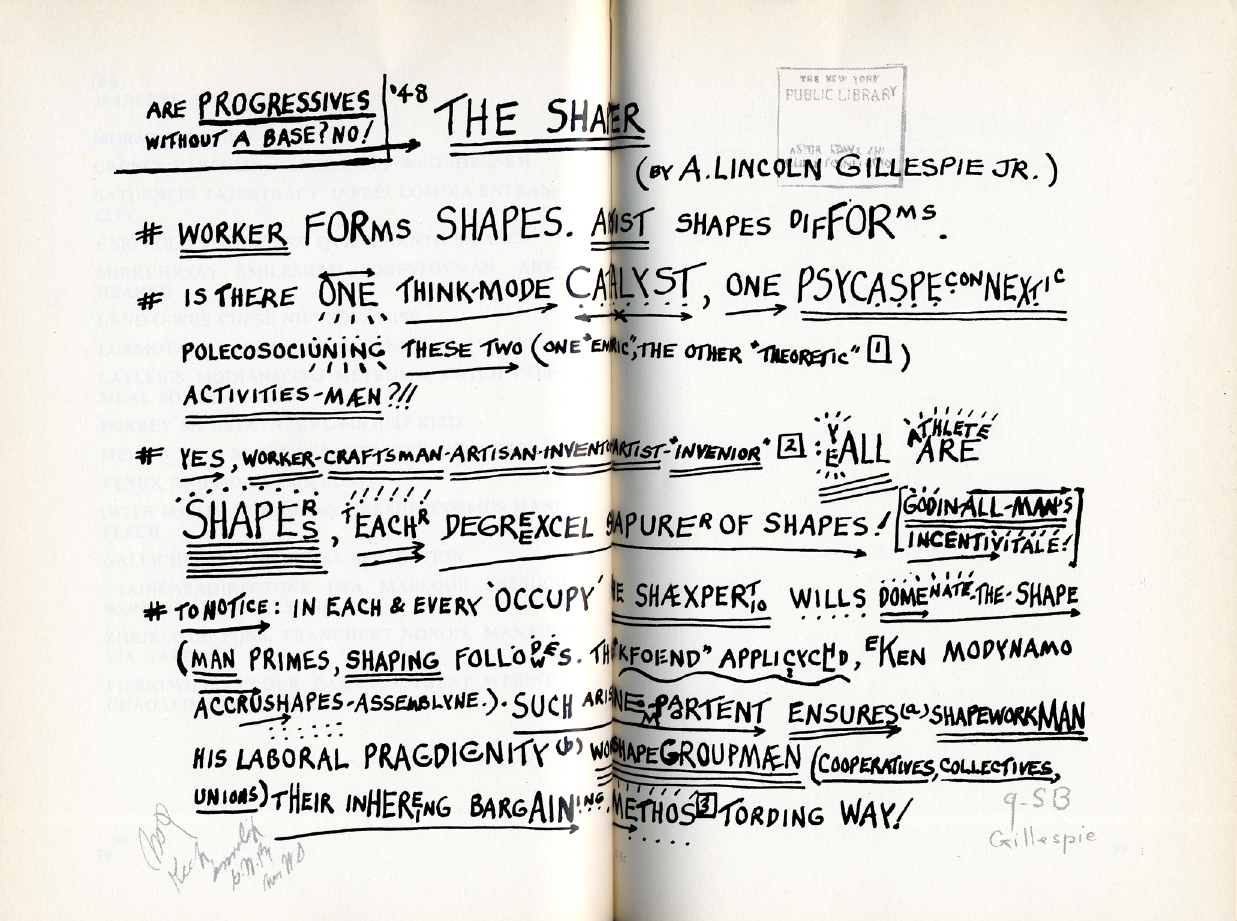 ARE PROGRESSIVES
WITHOUT A BASE? NO!
'48
THE SHAPER
THE NEW YORK
PUBLIC LIBRARY
(BY A. LINCOLN GILLESPIE JR.)
# WORKER FORMS SHAPES. SHAPES DIFFORMS.
# IS THERE ONE THINK-MODE CATALYST, ONE PSYCASPECONNEXTIC
POLECOSOCIUNING THESE TWO (ONE THE OTHER "THEORETIC" 1)
ACTIVITIES-MÆN?!!
# YES, WORKER-CRAFTSMAN-ARTISAN-"INVENIOR" 2 : YEALL ATHLETE ARE
SHAPERS, TEACHR DEGREEXCEL OF SHAPES! [GODIN-ALL-MAN'S
INCENTIVITALÉ!]
# TO NOTICE: IN EACH & EVERY 'OCCUPY' SHÆXPERT WILLS DOMENATE-THE-SHAPE
(MAN PRIMES, SHAPING APPLICYCHD, EKEN MODYNAMO
ACCRUSHAPES-ASSEMBLYNE.). SUCH ENSURES (a) SHAPEWORKMAN
HIS LABORAL PRAGDIGNITY (b) GROUPMÆN (COOPERATIVES, COLLECTIVES,
UNIONS) THEIR INHEREING BARGAINING METHOS 3 TORDING WAY!
9-SB
Gillespie